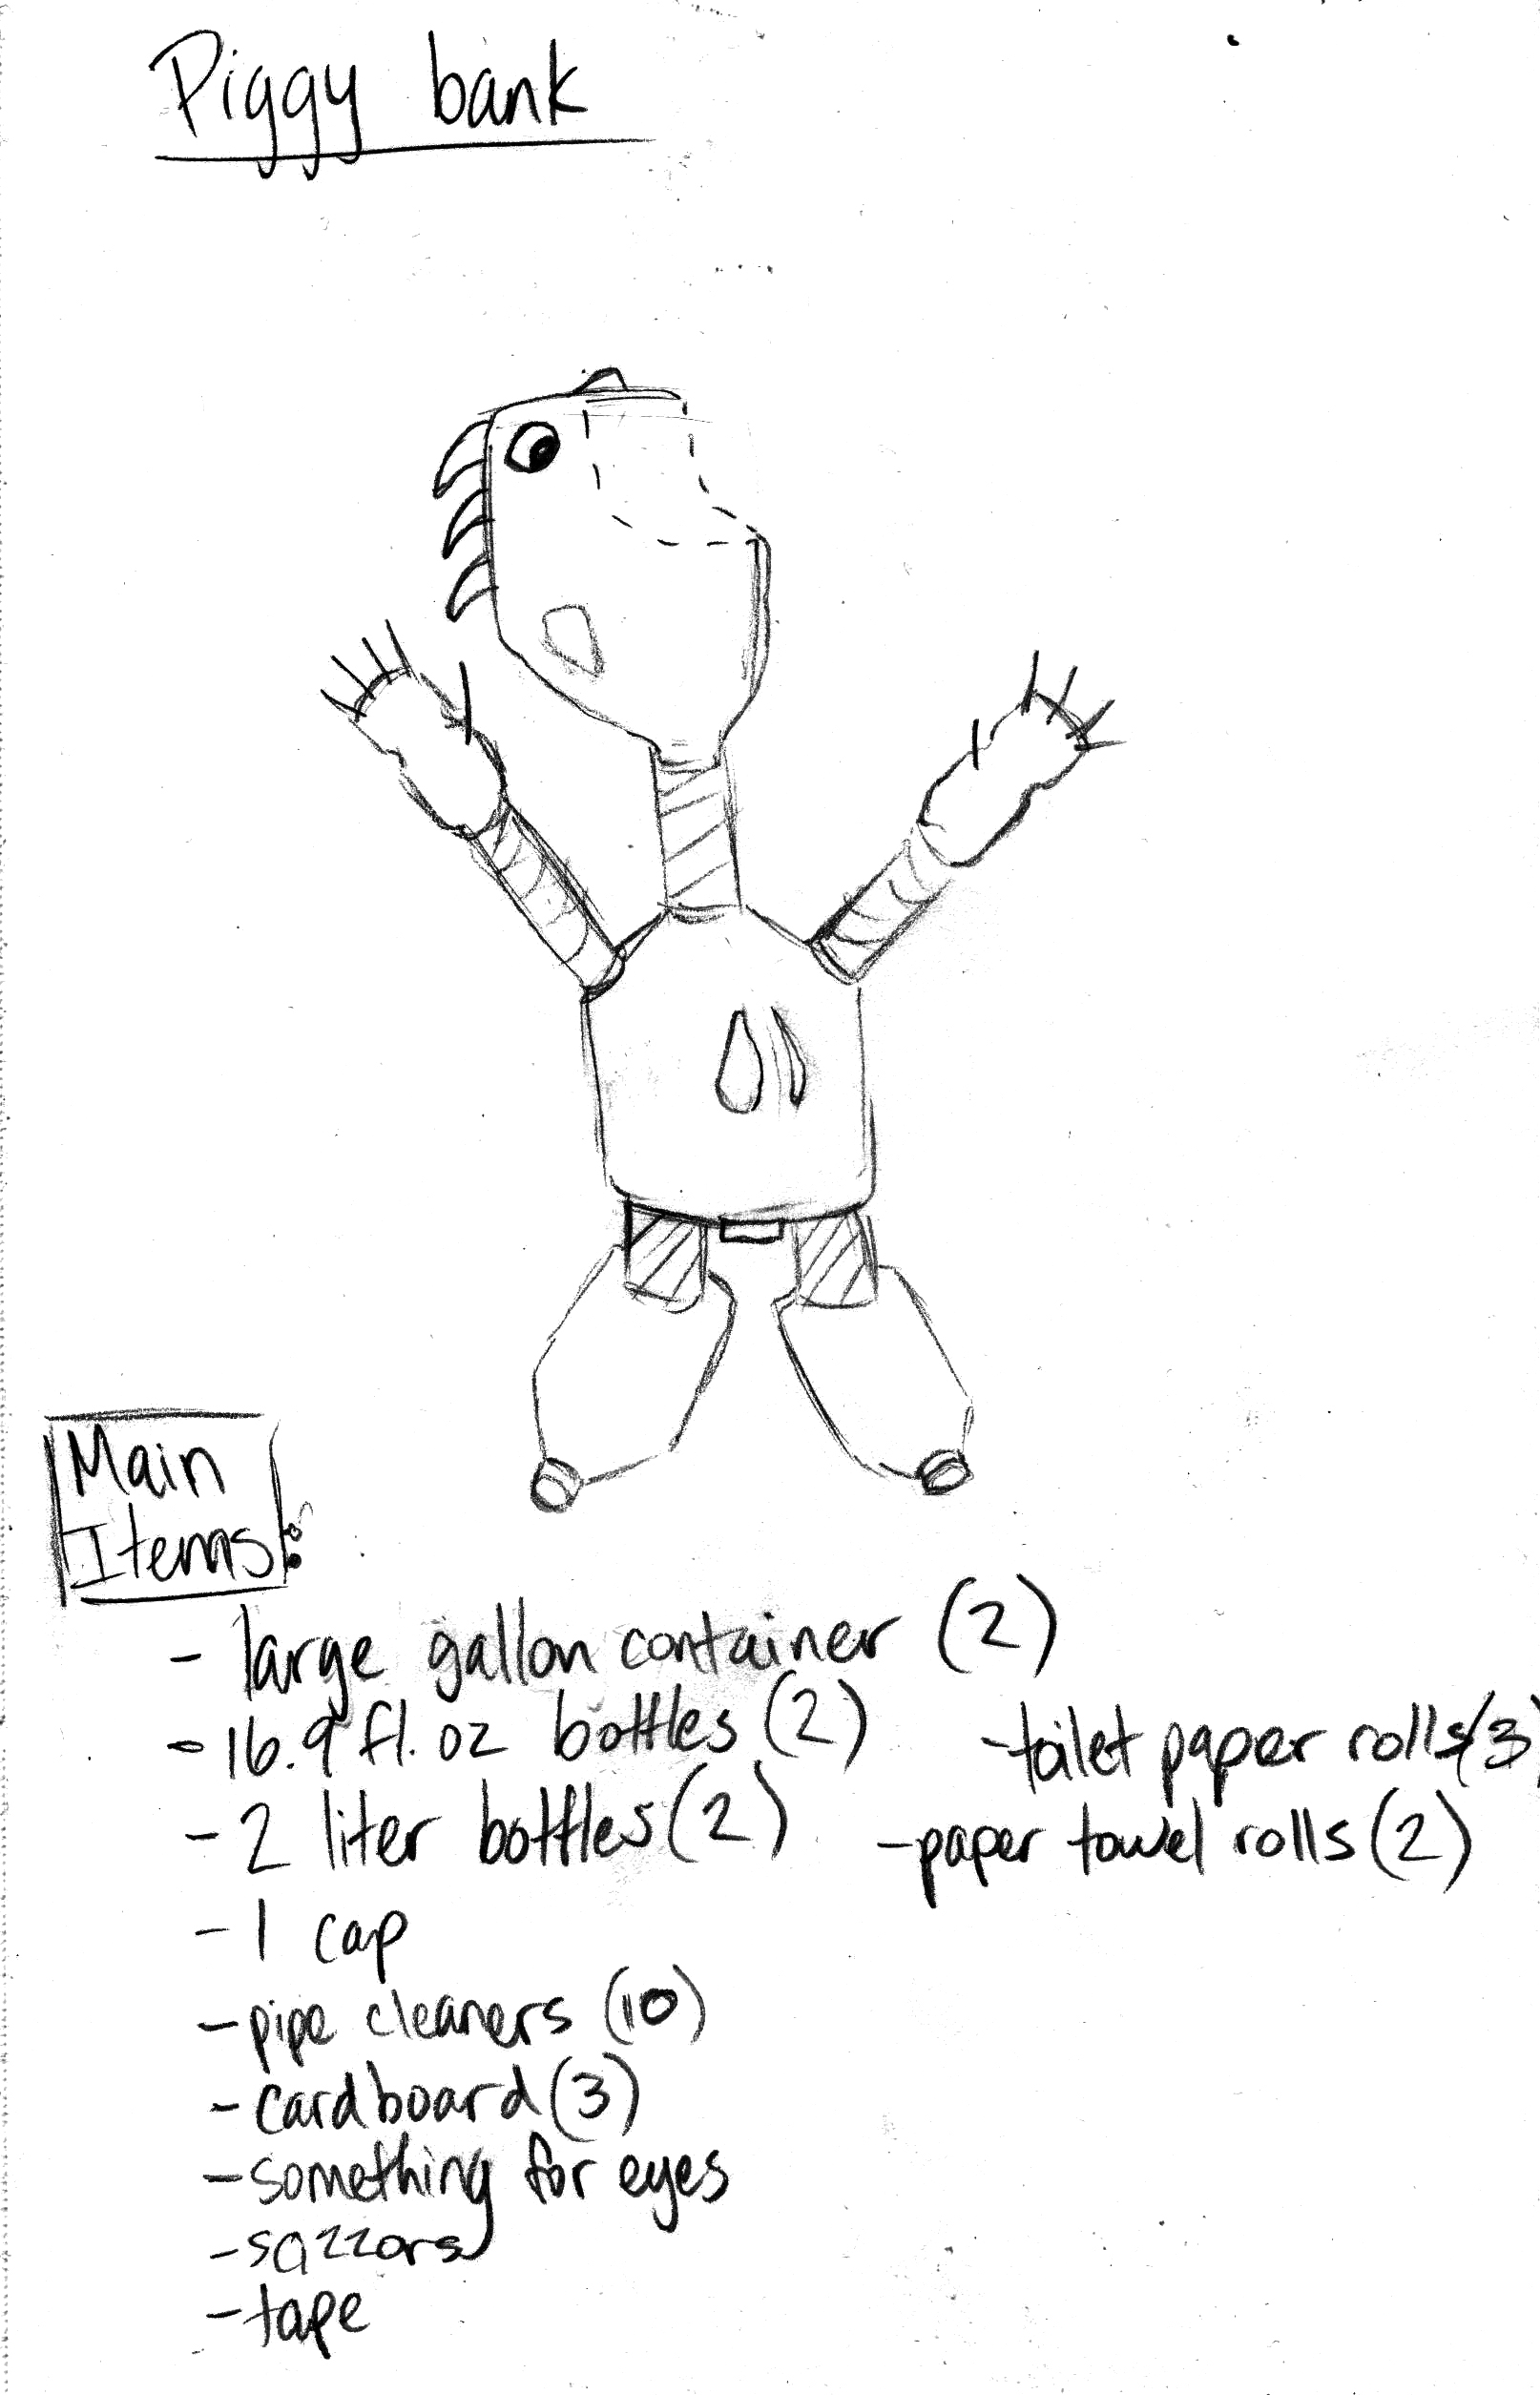 Piggy bank
Main
Items:
- large gallon container (2)
- 16.9 fl. oz bottles (2)
- 2 liter bottles (2)
- 1 cap
- pipe cleaners (10)
- cardboard (3)
- something for eyes
- sazzors
- tape
- toilet paper rolls (3)
- paper towel rolls (2)